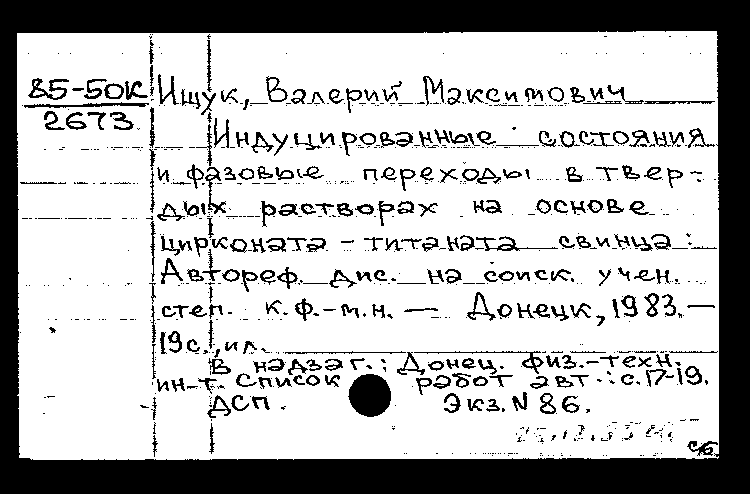 85-50К
2673
Ищук, Валерий Максимович
Индуцированные состояния
и фазовые переходы в твер-
дых растворах на основе
цирконата-титаната свинца:
Автореф. дис. на соиск. учен.
степ. к.ф.-м.н. — Донецк, 1983.—
19с., ил.
В надзаг.: Донец. физ.-техн.
ин-т. Список работ авт.: с.17-19.
ДСП. Экз. N 86.
сб.